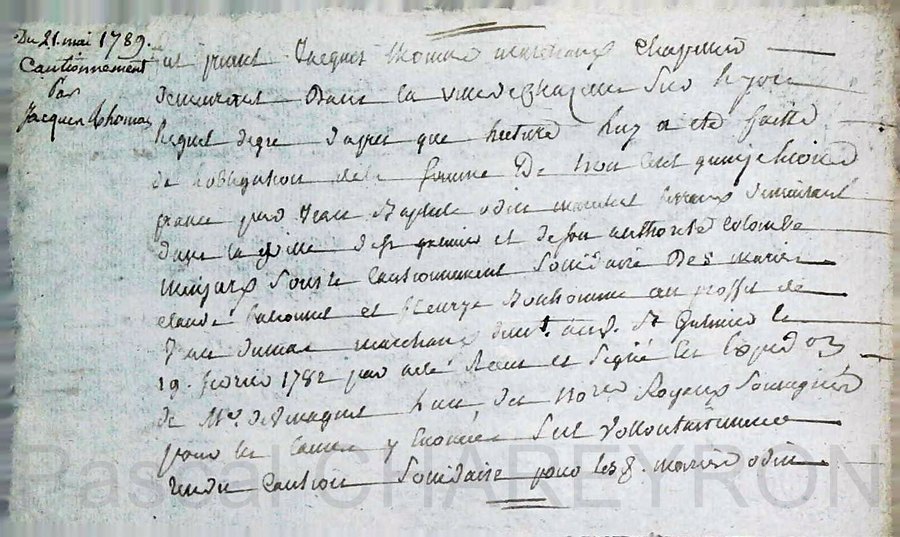 Du 21. mai 1789.
Cautionnement
Par
Jacques Thomas
fut présent Jacques Thomas marchand Chapelier
demeurant dans la ville de Chazelle sur le jour
lequel de gré d'apprès que lecture luy a été faitte
de l'obligation de la somme de trois cent
france par Jean Baptiste odin marchand demeurant
dans la ville de st galmier et de son authorité Colombe
sous le Cautionnement Solidaire des mariés
claude et fleurye Bonhomme au proffit de
Jean dumas marchand demt. aud. St Galmier le
19. fevrier 1782 par acte Recu et Signé en Expedon
de Me. l'un des nores Royeaux Soussignés
pour les causes y Enoncées S'est Vollontairement
rendu Caution Solidaire pour les d. mariés odin
Pascal CHAREYRON